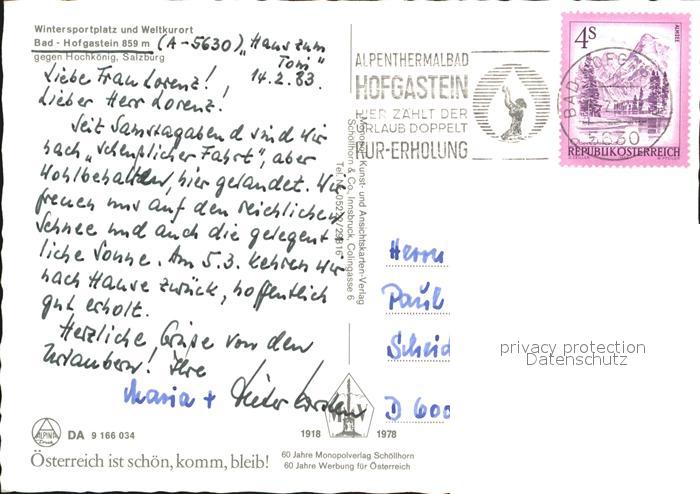 Wintersportplatz und Weltkurort
Bad - Hofgastein 859 m (A-5630) „Haus zum
gegen Hochkönig, Salzburg Toni"
14.2.83.
Liebe Frau Lorenz!,
Lieber Herr Lorenz.
Seit Samstagabend sind wir
nach „scheußlicher Fahrt", aber
Wohlbehalten, hier gelandet. Wir
freuen uns auf den reichlichen
Schnee und auch die gelegent-
liche Sonne. Am 5.3. kehren wir
nach Hause zurück, hoffentlich
gut erholt.
Herzliche Grüße von den
Urlaubern! Ihre
Maria +
ALPINA
Druck
DA 9 166 034
Österreich ist schön, komm, bleib!
1918 1978
60 Jahre Monopolverlag Schöllhorn
60 Jahre Werbung für Österreich
Kunst- und Ansichtskarten-Verlag
Schöllhorn & Co., Innsbruck, Colingasse 6
ALPENTHERMALBAD
HOFGASTEIN
HIER ZÄHLT DER
URLAUB DOPPELT
KUR-ERHOLUNG
BAD HOFG
5630
4S
ALMSEE
REPUBLIK ÖSTERREICH
Herrn
Paul
Scheid
D 600
privacy protection
Datenschutz